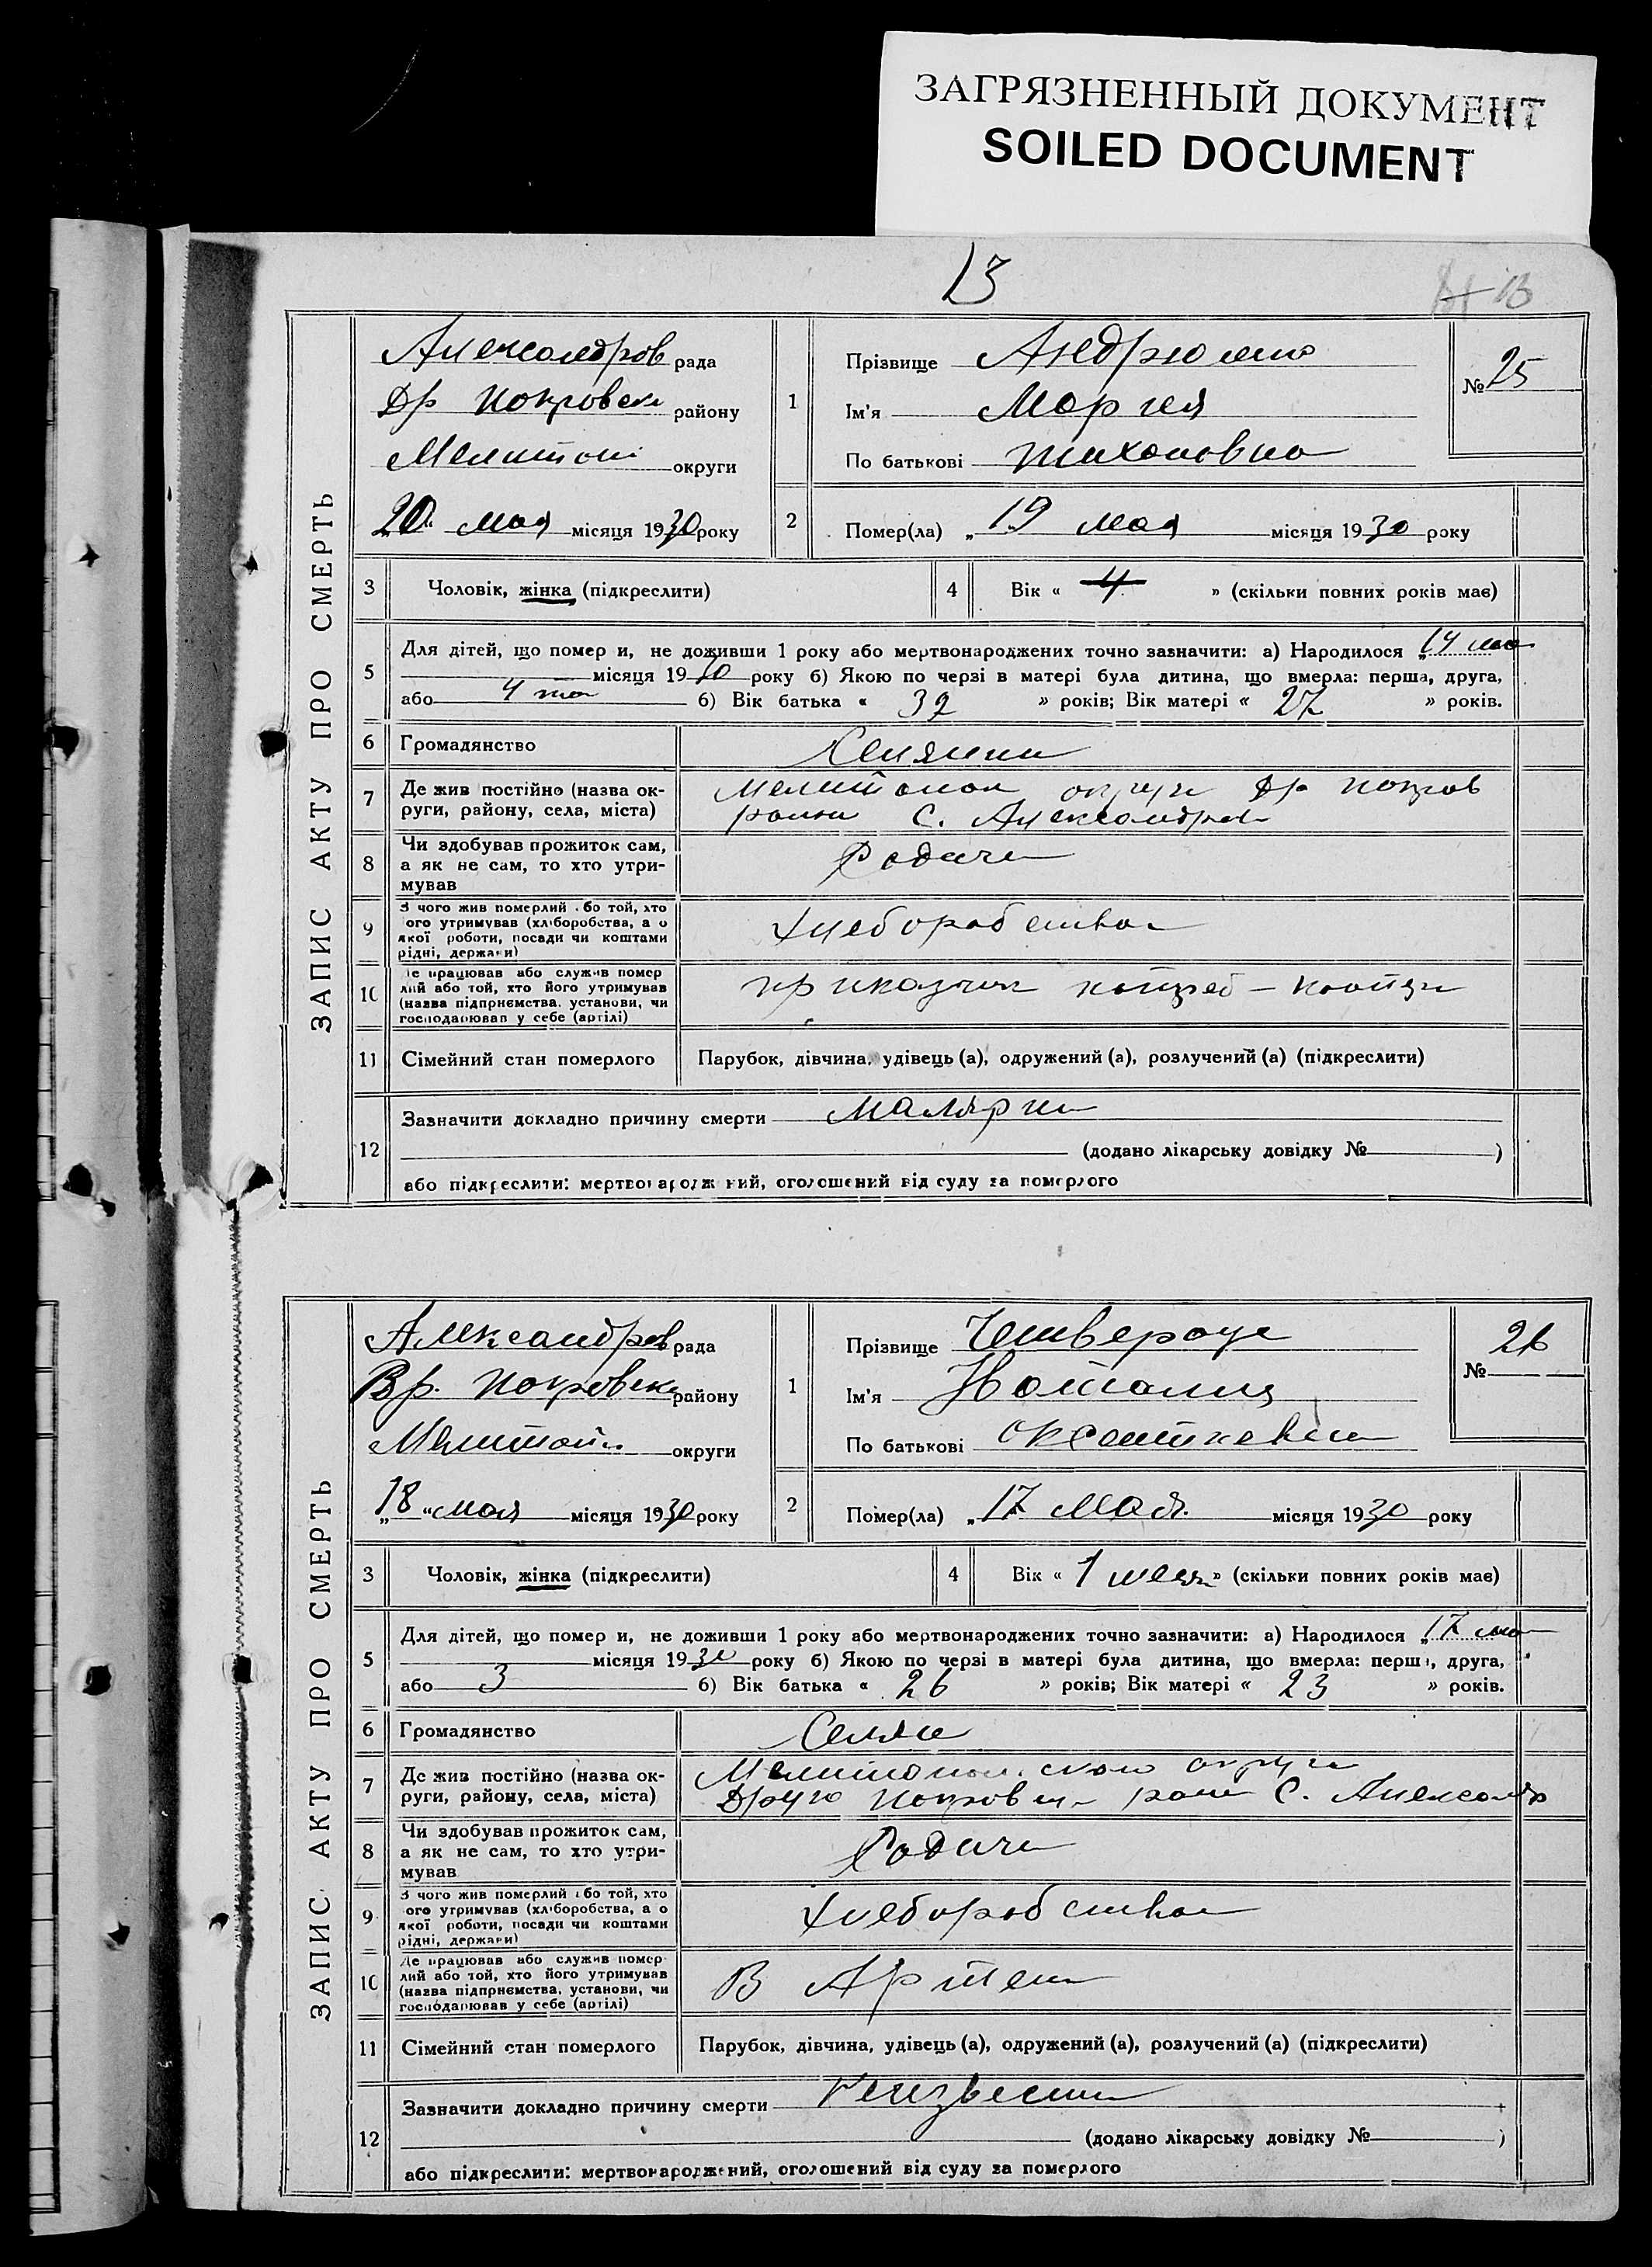 ЗАГРЯЗНЕННЫЙ ДОКУМЕНТ
SOILED DOCUMENT
13
13
ЗАПИС АКТУ ПРО СМЕРТЬ
Александров рада
Др Покровск району
Мелитоп округи
„20“ мая місяця 1930 року
1
Прізвище
Ім'я Мария
По батькові Тихоновна
№ 25
2
Помер(ла) „19 мая місяця 1930 року
3 Чоловік, жінка (підкреслити)
4 Вік « 4 » (скільки повних років має)
5 Для дітей, що помер и, не доживши 1 року або мертвонароджених точно зазначити: а) Народилося „14 мая
місяця 1930 року б) Якою по черзі в матері була дитина, що вмерла: перша, друга,
або 4 б) Вік батька « 32 » років; Вік матері « 27 » років.
6 Громадянство Селянин
7 Де жив постійно (назва ок-
руги, району, села, міста)
Мелитопол округи Др Покров
район С. Александров
8 Чи здобував прожиток сам,
а як не сам, то хто утри-
мував
Родичи
9 З чого жив померлий або той, хто
ого утримував (хліборобства, а о
якої роботи, посади чи коштами
рідні, держави)
Хлеборобства
10 Де працював або служив помер
лий або той, хто його утримував
(назва підприємства, установи, чи
господарював у себе (артілі)
приказчик
11 Сімейний стан померлого Парубок, дівчина, удівець (а), одружений (а), розлучений (а) (підкреслити)
12 Зазначити докладно причину смерти Малярия
(додано лікарську довідку № )
або підкреслити: мертвонароджений, оголошений від суду за померлого
ЗАПИС АКТУ ПРО СМЕРТЬ
Александров рада
Вр. Покровск району
Мелитоп округи
„18“ мая місяця 1930 року
1
Прізвище
Ім'я Наталия
По батькові
№ 26
2
Помер(ла) „17 мая місяця 1930 року
3 Чоловік, жінка (підкреслити)
4 Вік « 1 » (скільки повних років має)
5 Для дітей, що помер и, не доживши 1 року або мертвонароджених точно зазначити: а) Народилося „17
місяця 1930 року б) Якою по черзі в матері була дитина, що вмерла: перша, друга,
або 3 б) Вік батька « 26 » років; Вік матері « 23 » років.
6 Громадянство Селян
7 Де жив постійно (назва ок-
руги, району, села, міста)
Мелитопольского округи
Друго Покровск район С. Александр
8 Чи здобував прожиток сам,
а як не сам, то хто утри-
мував
Родичи
9 З чого жив померлий або той, хто
ого утримував (хліборобства, а о
якої роботи, посади чи коштами
рідні, держави)
Хлеборобства
10 Де працював або служив помер
лий або той, хто його утримував
(назва підприємства, установи, чи
господарював у себе (артілі)
В Артели
11 Сімейний стан померлого Парубок, дівчина, удівець (а), одружений (а), розлучений (а) (підкреслити)
12 Зазначити докладно причину смерти неизвестна
(додано лікарську довідку № )
або підкреслити: мертвонароджений, оголошений від суду за померлого